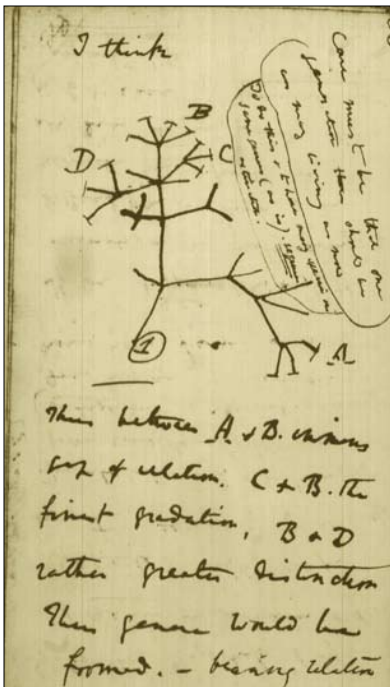 I think
B
D
C
Case must be that one
generation then should be
as many living as now
To do this & to have many species in
same genus (as is). requires
extinction.
1
A
Thus between A & B. immens
gap of relation. C & B. the
finest gradation, B & D
rather greater distinction
Thus genera would be
formed. – bearing relation